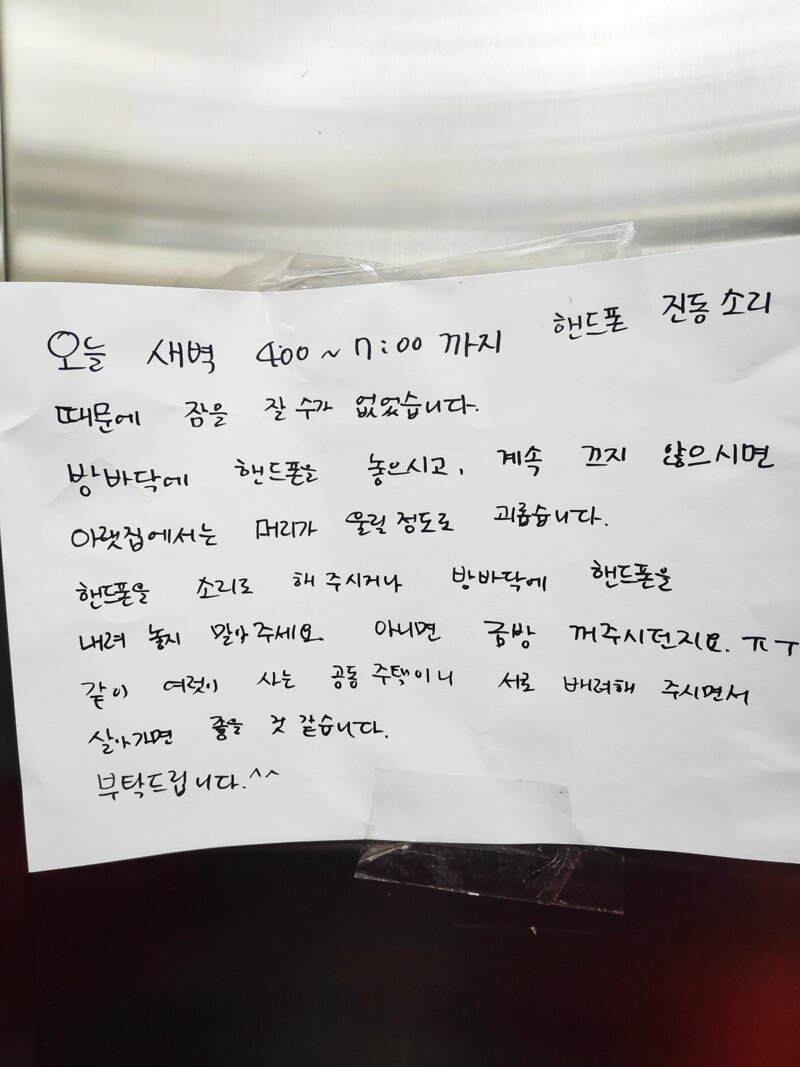 오늘 새벽 4:00 ~ 7:00 까지 핸드폰 진동소리
때문에 잠을 잘 수가 없었습니다.
방바닥에 핸드폰을 놓으시고, 계속 끄지 않으시면
아랫집에서는 머리가 울릴 정도로 괴롭습니다.
핸드폰을 소리로 해 주시거나 방바닥에 핸드폰을
내려 놓지 말아주세요. 아니면 금방 꺼주시던지요. ㅠㅜ
같이 여럿이 사는 공동 주택이니 서로 배려해 주시면서
살아가면 좋을 것 같습니다.
부탁드립니다.^^